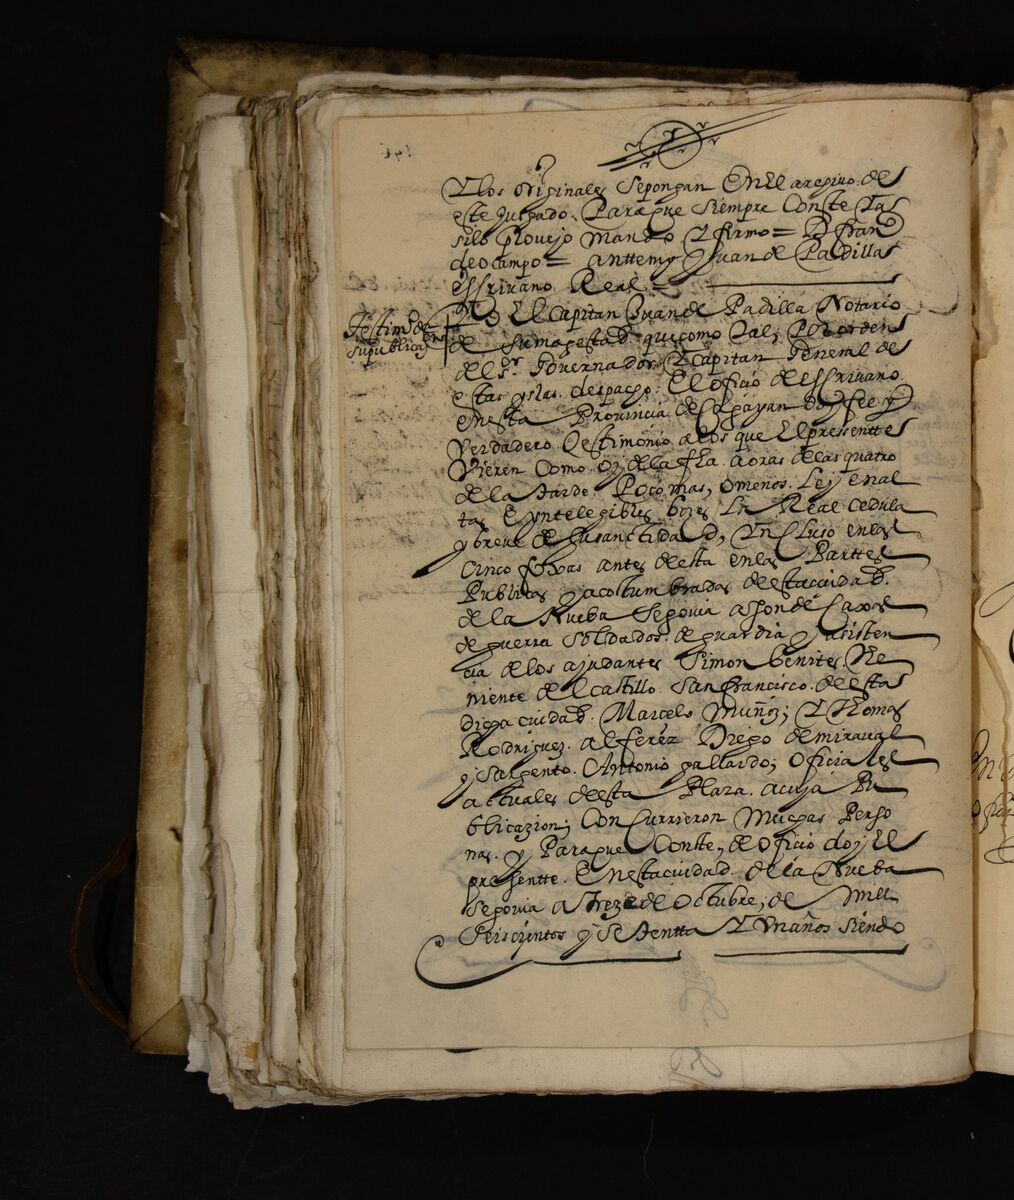 Y los originales sepongan En El archivo. de
este Juzgado. Paraque siempre Conste Yas
silo proueyo Mando Y firmo = D fran
deocampo = anttemy Juan de Padilla
esSriuano Real =
Testimo de
supublicaon
El Capitan Juan de Padilla Notario
de sumagestad que como tal; Por orden
del Sr Gouernador Y Capitan General de
estas yslas. despacho. El oficio de esSriuano
enesta Prouincia de Cagayan doy fee y
Verdadero Testimonio alos que El pressentte
Vieren Como. oy dela fha. aoras delas quatro
de la tarde. Poco mas, o menos. Ley en al
tas E yntelegibles bozes La Real cedula
y breue de susanctidad, YnCluso enlas
Cinco fojas antes desta enlas Parttes
Publicas y acostumbradas destaciudad.
de la Nueba Segouia asonde Caxas
de guerra Soldados. de guardia y asisten
cia de los ajudantes Simon benites. The
niente del Castillo. San francisco. de esta
dicha ciudad. Marcelo Muñoz; Y Thomas
Rodriguez. alferez Diego demiraual
y Sargento. Antonio gallardo; oficiales
actuales de esta Plaza. acuja Pu
blicazion; Con Currieron Muchas Perso
nas. y Paraque Conste, de oficio doy El
pressentte. Enestaciudad. de la Nueba
Segouia a treze de Octubre, de Mill
Seiscientos y Setentta Y Vnaños siendo